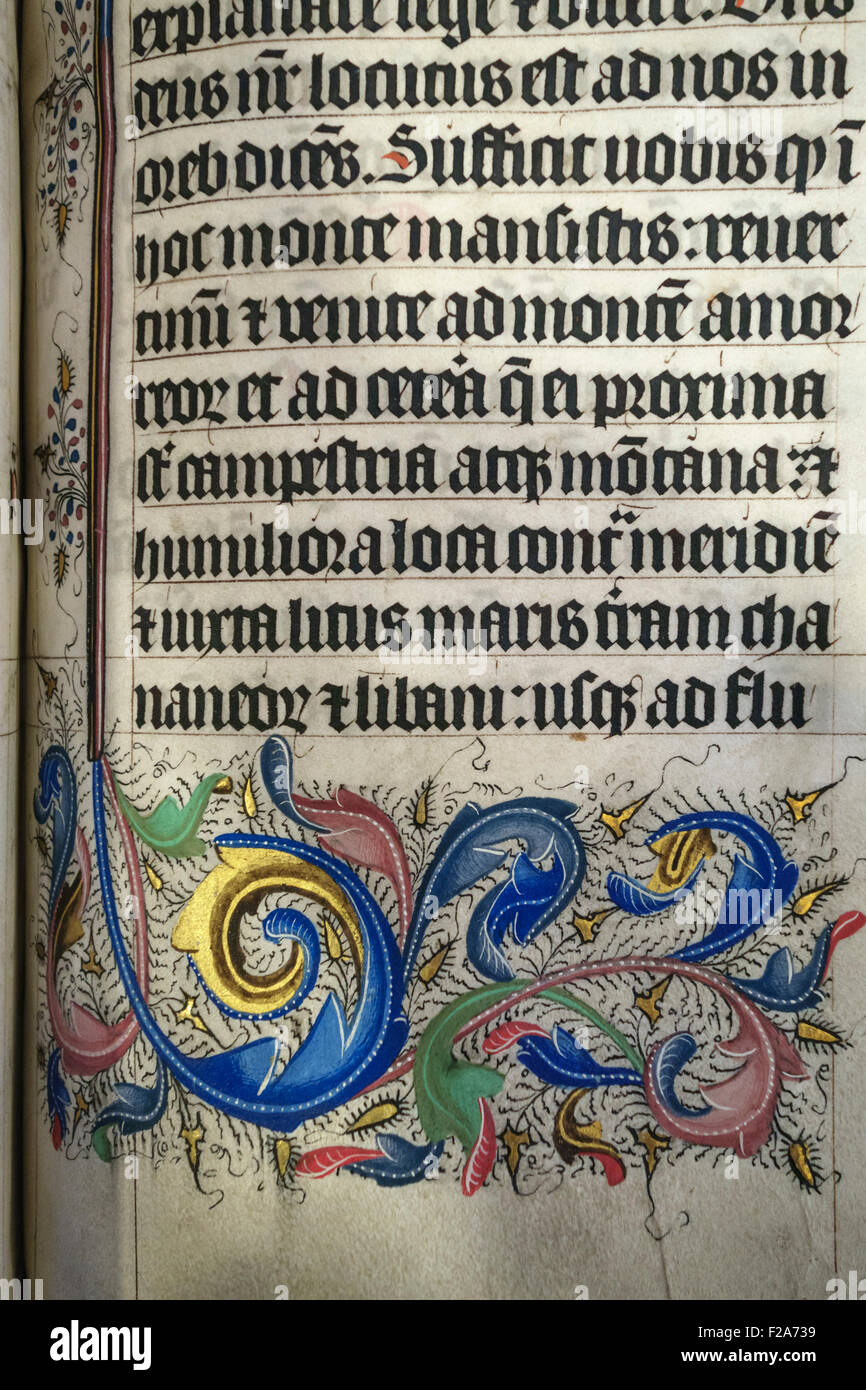 explanare lege et dicere. Dns
deus nr̄ locutus est ad nos in
oreb dicēs. Sufficit uobis qꝫ ī
hoc monte mansistis: reuer
timī ⁊ venite ad montē amor
reoꝝ et ad cetēa q̄ ei proxima
st̄ campestria atqꝫ mōtana: ⁊
humiliora loca contᵃ meridiē
⁊ iuxta litus maris t̄ram cha
naneoꝝ ⁊ libani: usqꝫ ad flu
alamy
alamy
Image ID: F2A739
www.alamy.com